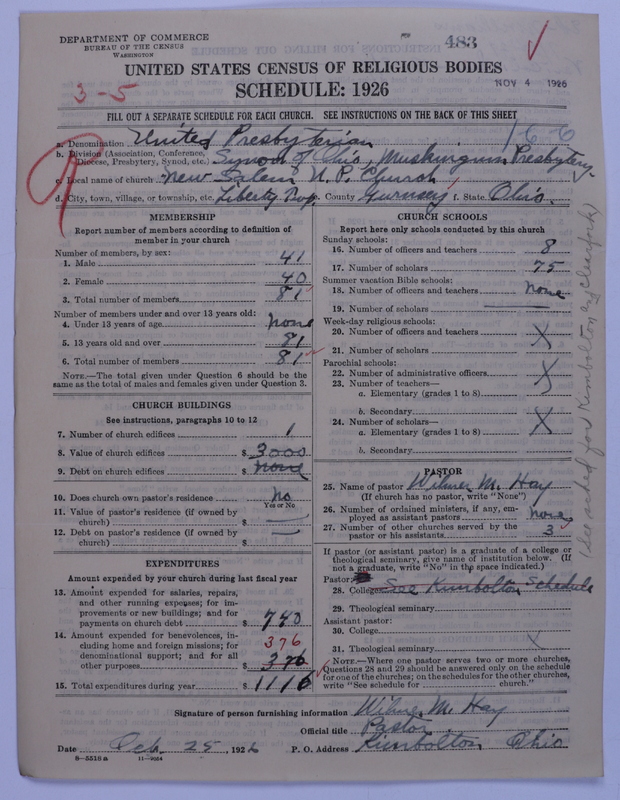 DEPARTMENT OF COMMERCE
BUREAU OF THE CENSUS
WASHINGTON
483
UNITED STATES CENSUS OF RELIGIOUS BODIES
SCHEDULE: 1926
NOV 4 1926
3-5
FILL OUT A SEPARATE SCHEDULE FOR EACH CHURCH. SEE INSTRUCTIONS ON THE BACK OF THIS SHEET
166
a. Denomination United Presbyterian
b. Division (Association, Conference, Diocese, Presbytery, Synod, etc.) Synod of Ohio, Muskingum Presbytery
c. Local name of church New Salem U. P. Church
d. City, town, village, or township, etc. Liberty Twp. e. County Guernsey f. State Ohio.
MEMBERSHIP
Report number of members according to definition of
member in your church
Number of members, by sex:
1. Male 41
2. Female 40
3. Total number of members 81
Number of members under and over 13 years old:
4. Under 13 years of age none
5. 13 years old and over 81
6. Total number of members 81
NOTE.—The total given under Question 6 should be the
same as the total of males and females given under Question 3.
CHURCH BUILDINGS
See instructions, paragraphs 10 to 12
7. Number of church edifices 1
8. Value of church edifices $ 3000
9. Debt on church edifices $ none
10. Does church own pastor's residence No
Yes or No
11. Value of pastor's residence (if owned by
church) $ —
12. Debt on pastor's residence (if owned by
church) $ —
EXPENDITURES
Amount expended by your church during last fiscal year
13. Amount expended for salaries, repairs,
and other running expenses; for im-
provements or new buildings; and for
payments on church debt $ 740
14. Amount expended for benevolences, in- 376
cluding home and foreign missions; for
denominational support; and for all
other purposes $ 376
15. Total expenditures during year $ 1116
CHURCH SCHOOLS
Report here only schools conducted by this church
Sunday schools:
16. Number of officers and teachers 8
17. Number of scholars 75
Summer vacation Bible schools:
18. Number of officers and teachers none
19. Number of scholars
Week-day religious schools:
20. Number of officers and teachers X
21. Number of scholars
Parochial schools:
22. Number of administrative officers X
23. Number of teachers—
a. Elementary (grades 1 to 8)
b. Secondary
24. Number of scholars— X
a. Elementary (grades 1 to 8)
b. Secondary
PASTOR
25. Name of pastor Wilmer M. Hay
(If church has no pastor, write "None")
26. Number of ordained ministers, if any, em-
ployed as assistant pastors none
27. Number of other churches served by the
pastor or his assistants 3
If pastor (or assistant pastor) is a graduate of a college or
theological seminary, give name of institution below. (If
not a graduate, write "No" in the space indicated.)
Pastor:
28. College See Kimbolton Schedule
29. Theological seminary
Assistant pastor:
30. College
31. Theological seminary X
NOTE.—Where one pastor serves two or more churches,
Questions 28 and 29 should be answered only on the schedule
for one of the churches; on the schedules for the other churches,
write "See schedule for church."
Signature of person furnishing information Wilmer M. Hay
Official title Pastor
Date Oct. 25, 1926 P. O. Address Kimbolton Ohio
8—5518 a 11—9284